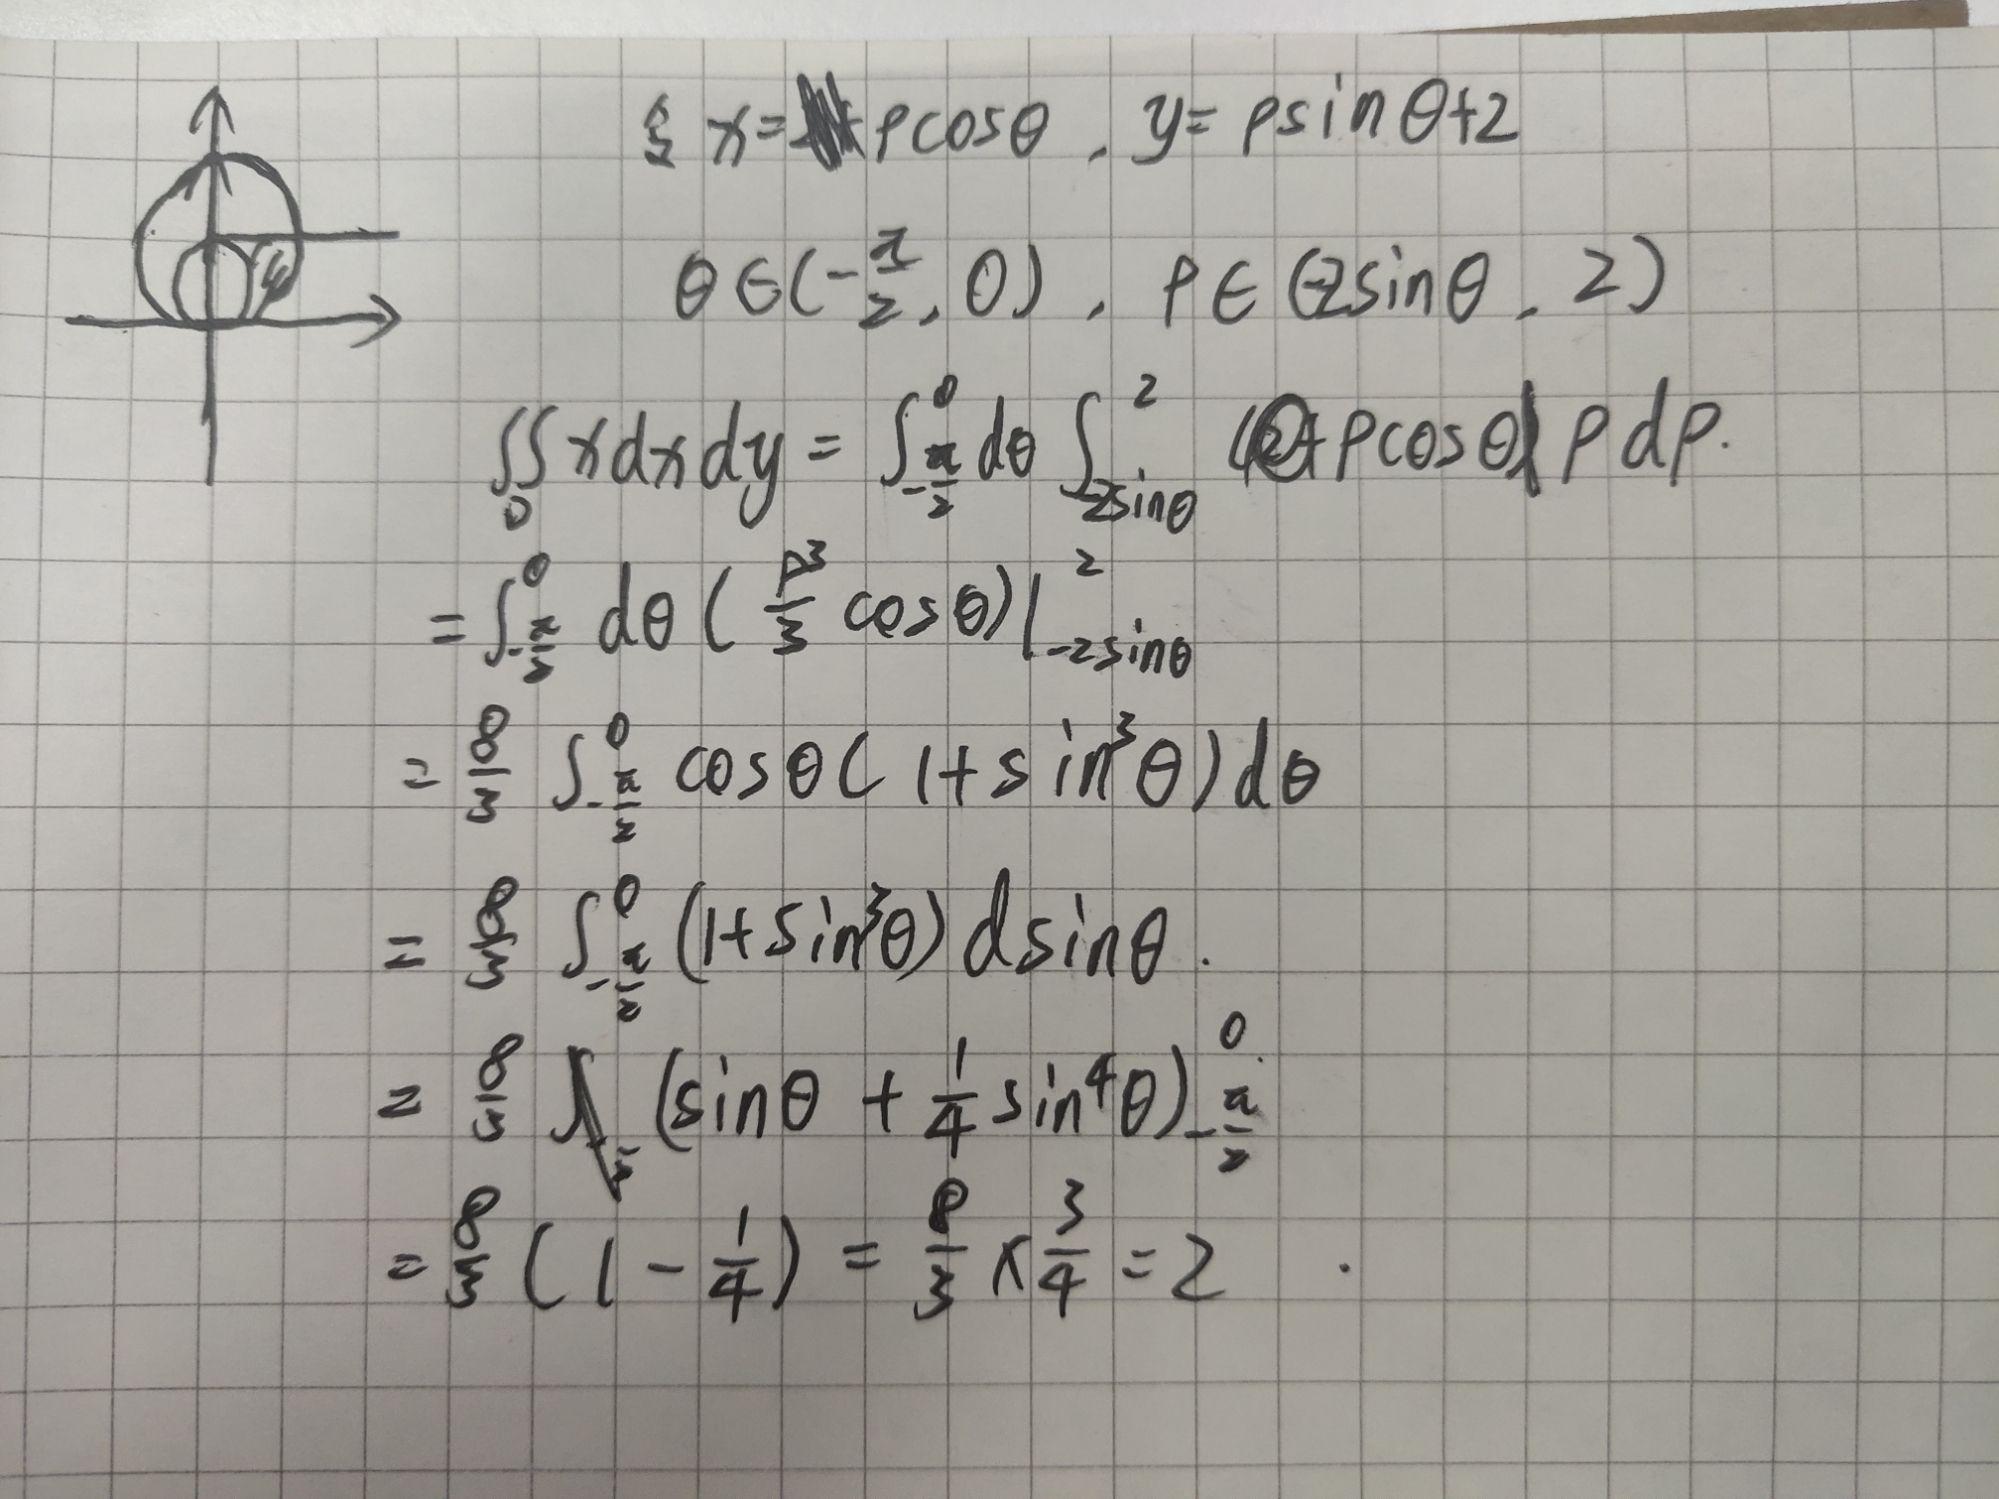 令 x=ρcosθ, y=ρsinθ+2
θ∈(-π/2, 0), ρ∈(-2sinθ, 2)
∬_D xdxdy = ∫_{-π/2}^0 dθ ∫_{-2sinθ}^2 ρcosθ ρdρ.
= ∫_{-π/2}^0 dθ (ρ³/3 cosθ)|_{-2sinθ}^2
= 8/3 ∫_{-π/2}^0 cosθ(1+sin³θ)dθ
= 8/3 ∫_{-π/2}^0 (1+sin³θ)dsinθ.
= 8/3 (sinθ + 1/4 sin⁴θ)_{-π/2}^0
= 8/3 (1 - 1/4) = 8/3 × 3/4 = 2.